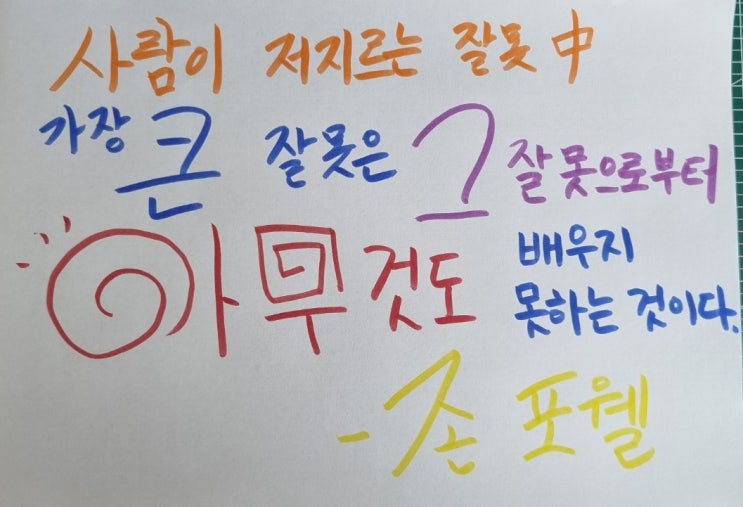 사람이 저지르는 잘못 中
가장 큰 잘못은 그 잘못으로부터
아무것도 배우지
못하는 것이다.
- 존 포웰